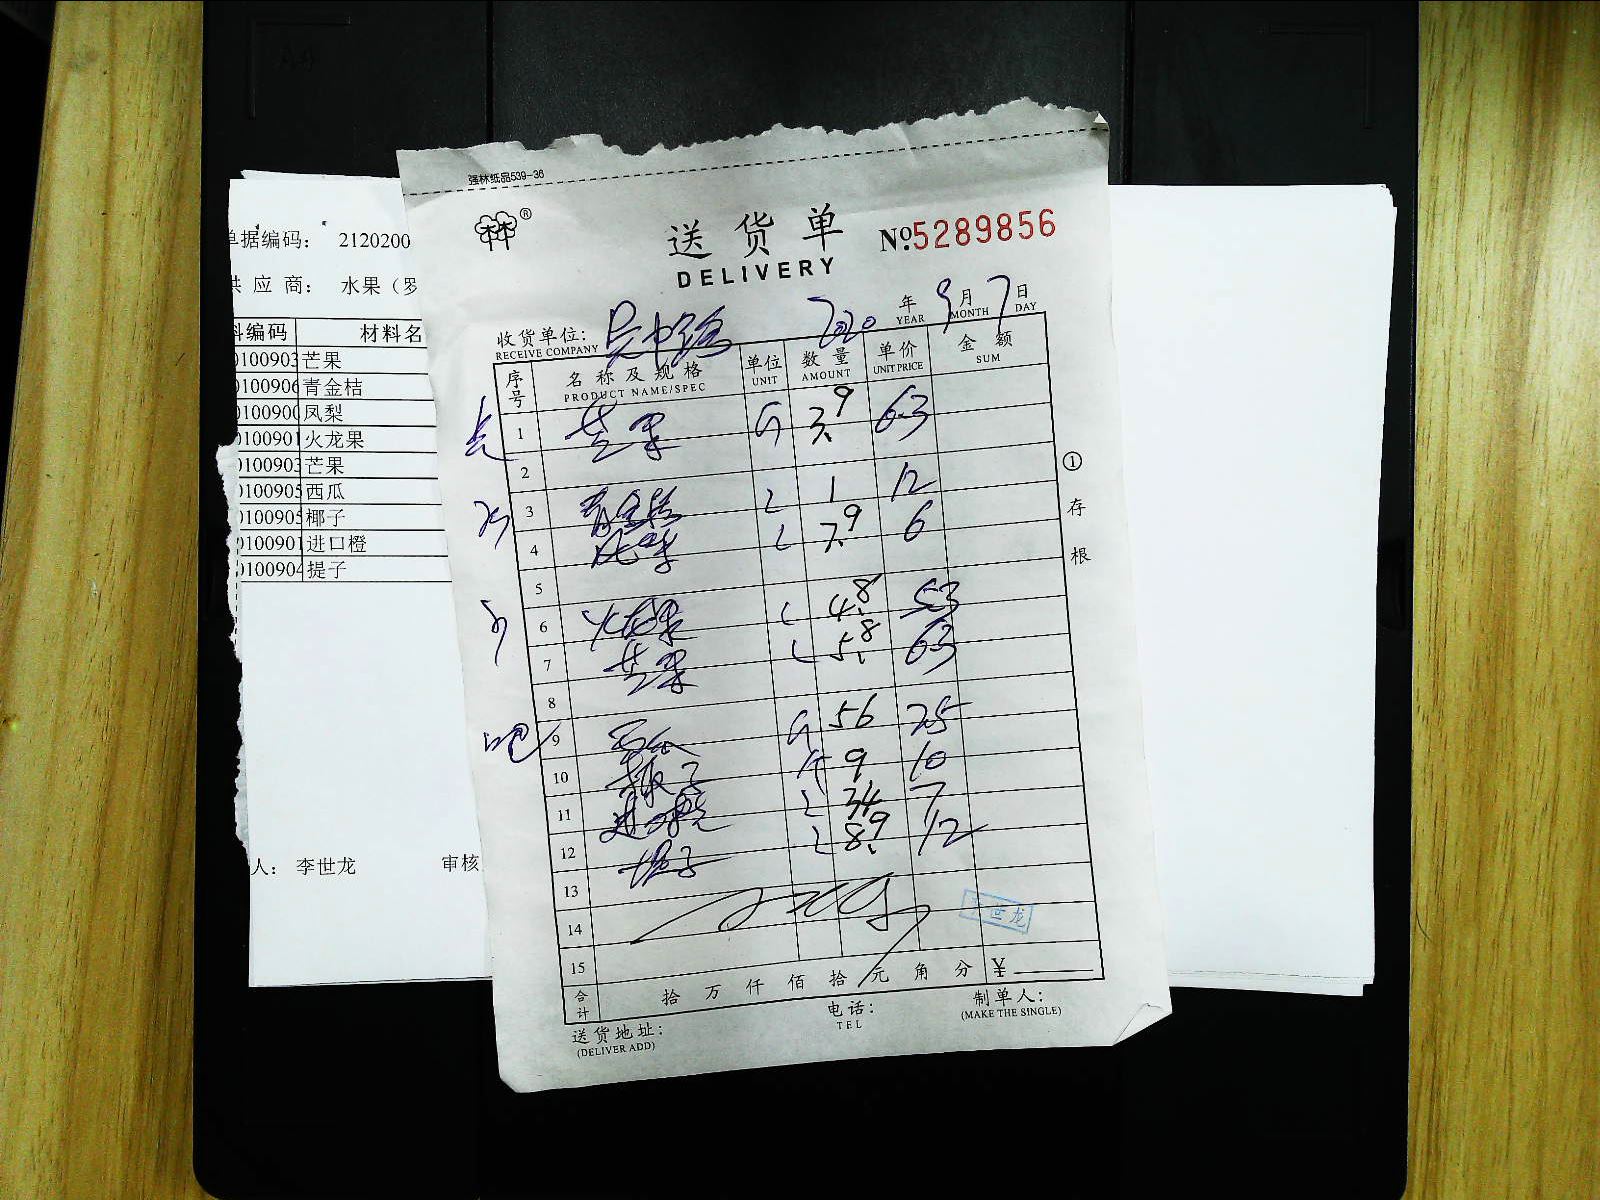 强林纸品539-36
®
送货单
DELIVERY
№5289856
收货单位:
RECEIVE COMPANY
2020年9月7日
YEAR MONTH DAY
序号 名称及规格 单位 数量 单价 金额
PRODUCT NAME/SPEC UNIT AMOUNT UNIT PRICE SUM
1 芒果 3.9 63
2
3 青金桔 1 12
4 凤梨 7.9 6
5
6 火龙果 4.8 53
7 芒果 5.8 63
8
吧 9 西瓜 56 25
10 椰子 个 9 10
11 进口橙 34 7
12 提子 8.9 12
13
14
15
李世龙
合计 拾 万 仟 佰 拾 元 角 分 ¥
送货地址:
(DELIVER ADD)
电话:
TEL
制单人:
(MAKE THE SINGLE)
①存根
单据编码: 2120200
供应商: 水果（罗
料编码 材料名
0100903 芒果
0100906 青金桔
0100900 凤梨
0100901 火龙果
0100903 芒果
0100905 西瓜
0100905 椰子
0100901 进口橙
0100904 提子
人: 李世龙 审核